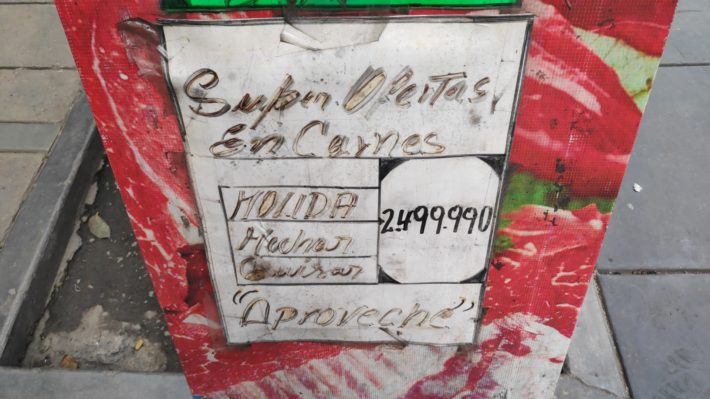 Super Ofertas
En Carnes
MOLIDA
Mechar
Guisar
2.499.990
"Aproveche"